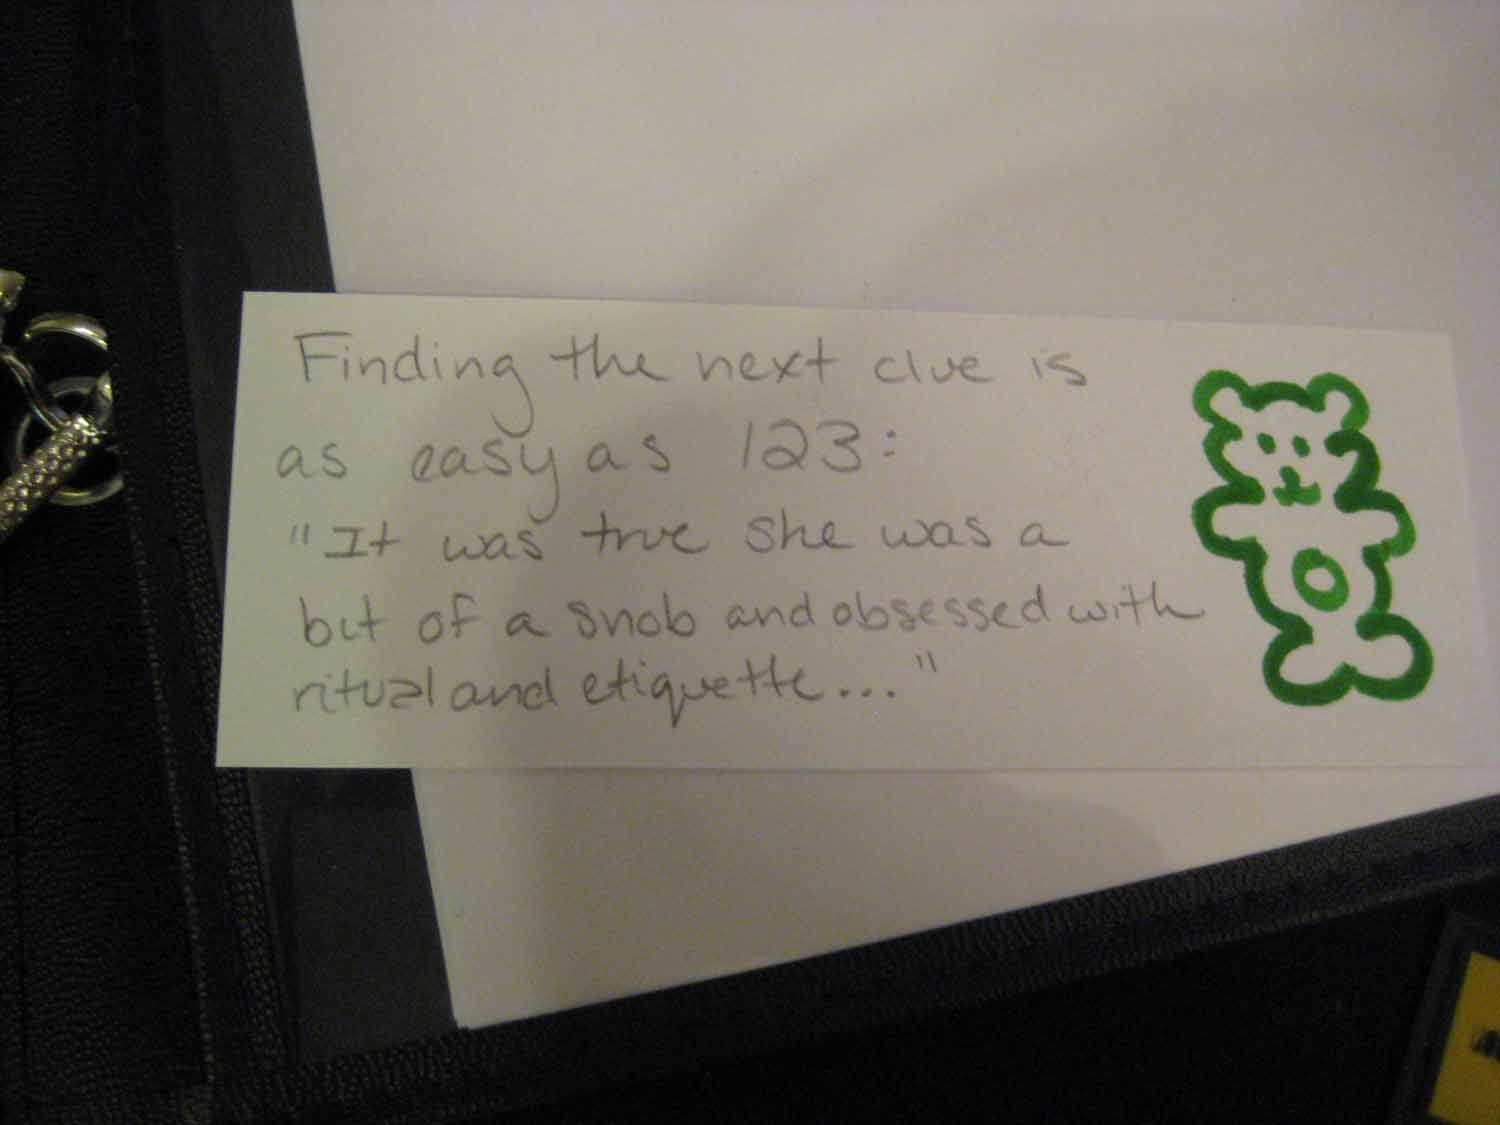 Finding the next clue is
as easy as 123:
"It was true she was a
bit of a snob and obsessed with
ritual and etiquette..."